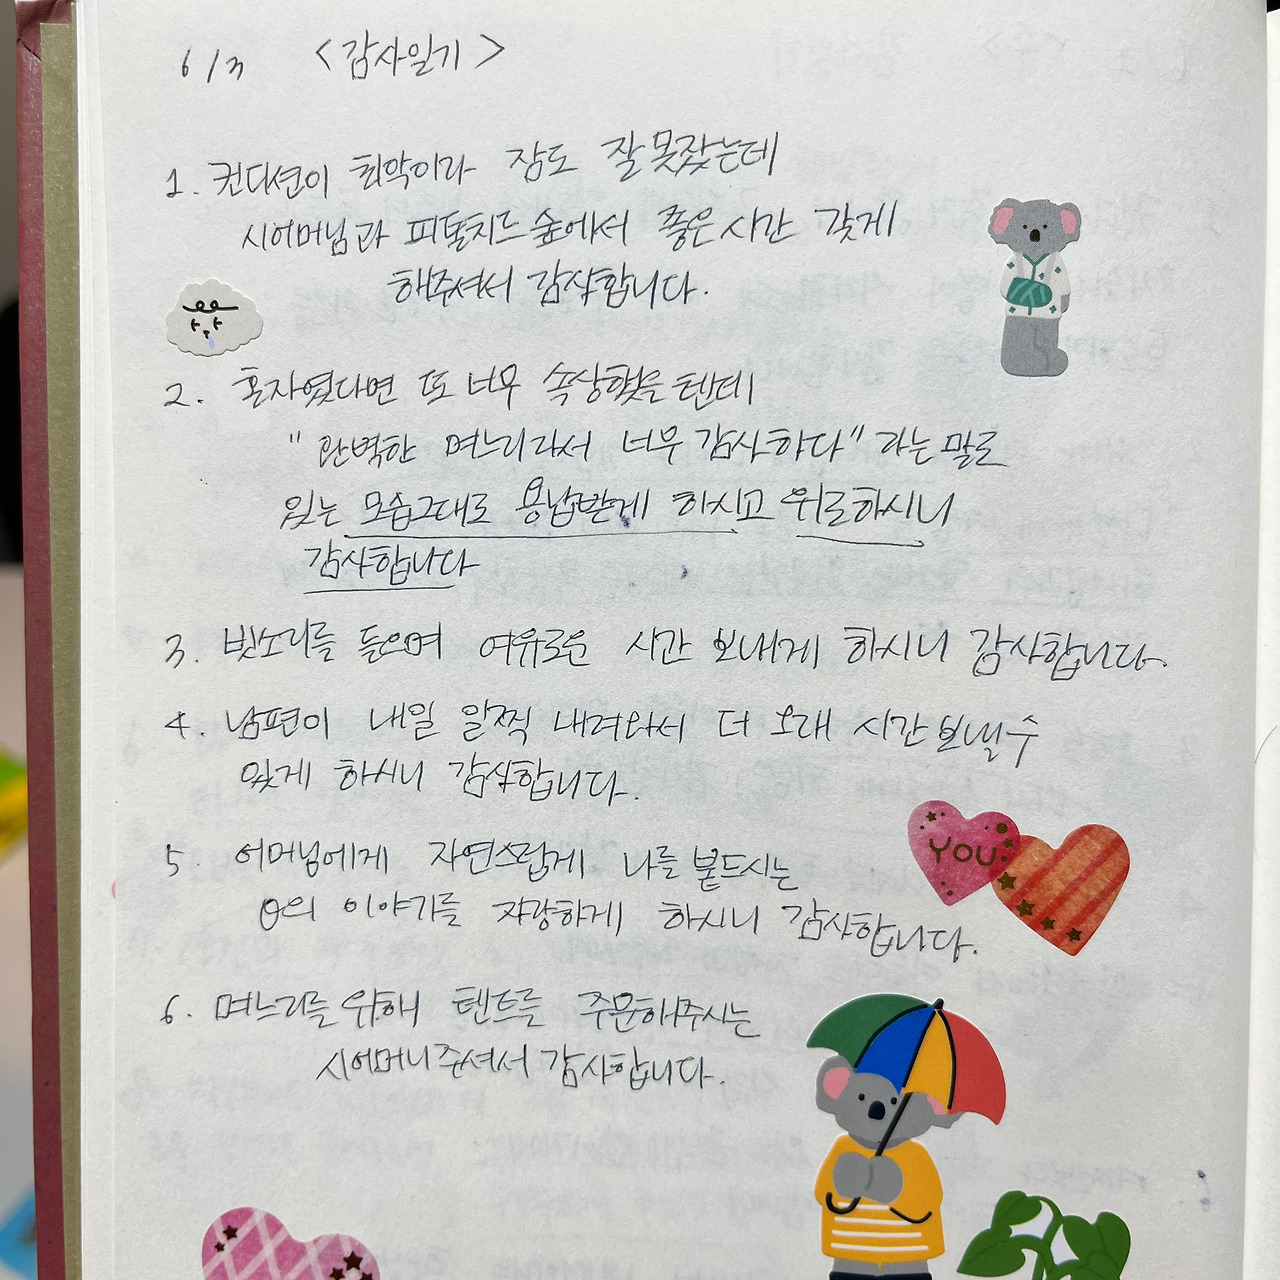 6/3 <감사일기>
1. 컨디션이 최악이라 잠도 잘 못잤는데
시어머님과 피톤치드 숲에서 좋은 시간 갖게
해주셔서 감사합니다.
2. 혼자였다면 또 너무 속상했을텐데
"완벽한 며느리라서 너무 감사하다" 라는 말로
있는 모습그대로 용납받게 하시고 위로하시니
감사합니다
3. 빗소리를 들으며 여유로운 시간 보내게 하시니 감사합니다
4. 남편이 내일 일찍 내려와서 더 오래 시간 보낼 수
있게 하시니 감사합니다.
5 어머님에게 자연스럽게 나를 붙드시는
의 이야기를 자랑하게 하시니 감사합니다.
YOU
6. 며느리를 위해 텐트를 주문해주시는
시어머니 주셔서 감사합니다.